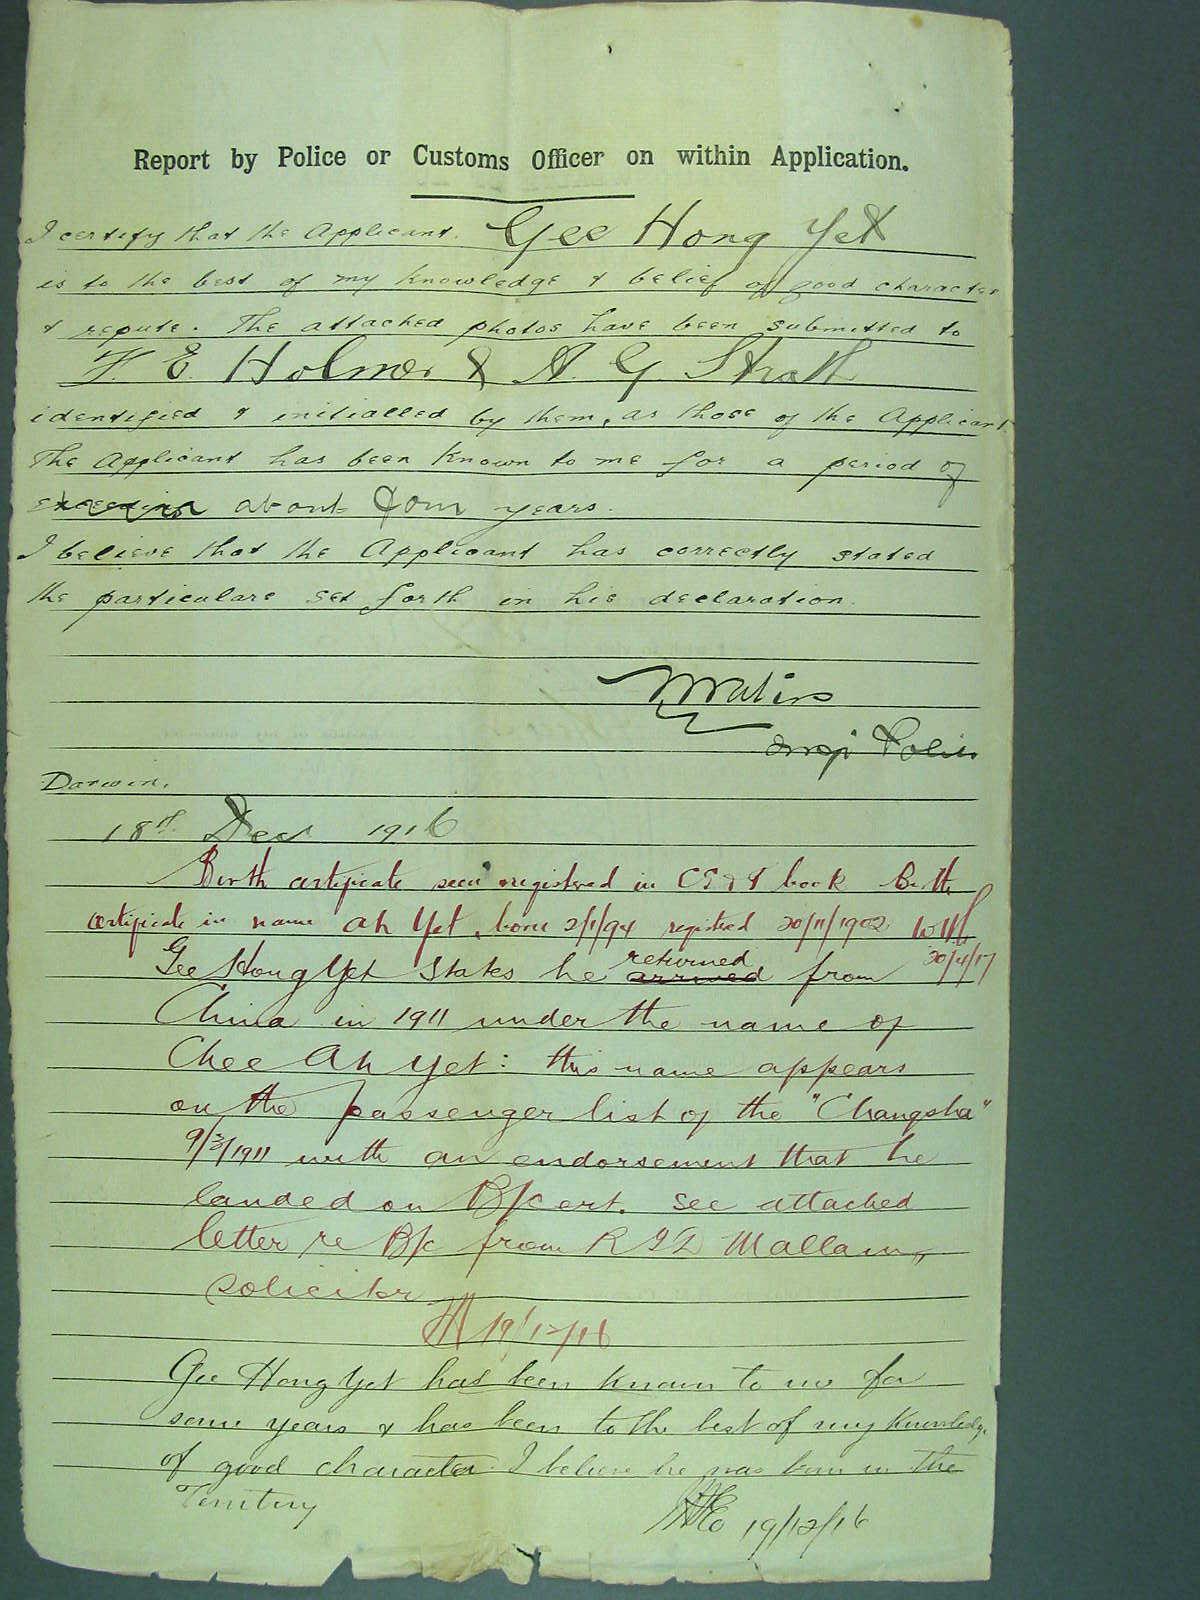 Report by Police or Customs Officer on within Application.
I certify that the Applicant. Gee Hong Yet
is to the best of my knowledge & belief of good character
& repute. The attached photos have been submitted to
F. E. Holmes & A. G. Strath
identified & initialled by them, as those of the Applicant
The Applicant has been known to me for a period of
exceeding about four years.
I believe that the Applicant has correctly stated
the particulars set forth in his declaration.
Darwin.
18th Dec 1916
Birth certificate seen registered in book Birth
certificate in name Ah Yet, born 2/1/94 registered 20/11/1902
20/4/17
returned
Gee Hong Yet states he arrived from
China in 1911 under the name of
Chee Ah Yet: this name appears
on the passenger list of the "Changsha"
9/3/1911 with an endorsement that he
landed on B/c ert. see attached
letter re B/c from R I D Mallam,
solicitor
19/12/16
Gee Hong Yet has been known to me for
some years & has been to the best of my knowledge
of good character. I believe he was born in the
Territory
19/12/16